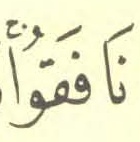 نَافَقُواۚ